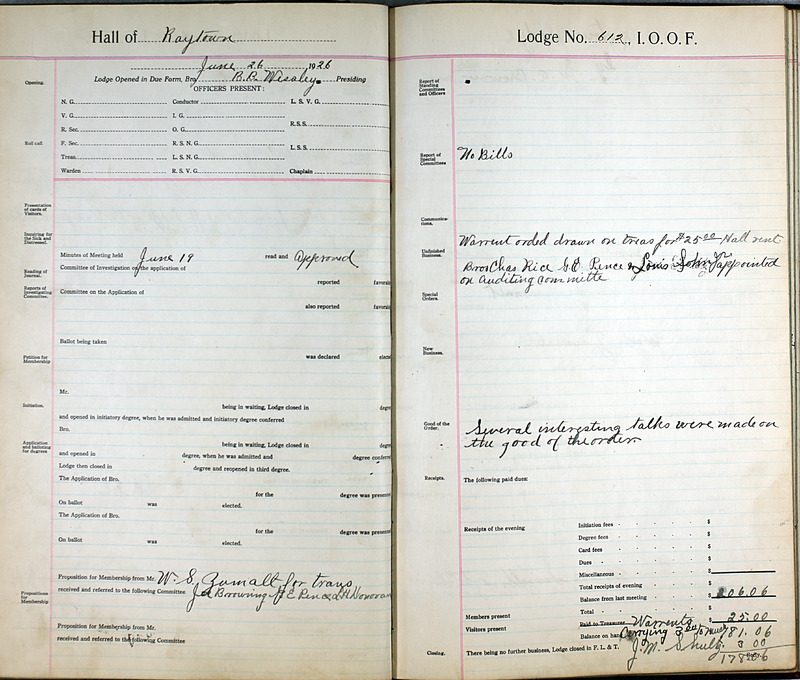 Hall of Raytown
June 26 1926
Lodge Opened in Due Form, Bro. B. R. Wisaley. Presiding
OFFICERS PRESENT:
Opening.
N. G. Conductor L. S. V. G.
V. G. I. G. R.S.S.
R. Sec. O. G.
Roll call.
F. Sec. R. S. N. G. L.S.S.
Treas. L. S. N. G.
Warden R. S. V. G. Chaplain
Presentation of cards of Visitors.
Inquiring for the Sick and Distressed.
Minutes of Meeting held June 19 read and approved
Reading of Journal.
Committee of Investigation on the application of
reported favora
Reports of Investigating Committee.
Committee on the Application of
also reported favora
Ballot being taken
was declared elect
Petition for Membership
Mr.
Initiation.
being in waiting, Lodge closed in degr
and opened in initiatory degree, when he was admitted and initiatory degree conferred
Bro.
Application and balloting for degrees
being in waiting, Lodge closed in degr
and opened in degree, when he was admitted and degree conferr
Lodge then closed in degree and reopened in third degree.
The Application of Bro.
for the degree was presente
On ballot was elected.
The Application of Bro.
for the degree was presente
On ballot was elected.
Proposition for Membership from Mr. W. S. Zumalt for trans
Propositions for Membership
received and referred to the following Committee J A Browning G E Pence J H Donovan
Proposition for Membership from Mr.
received and referred to the following Committee
Lodge No. 612, I. O. O. F.
Report of Standing Committees and Officers
Report of Special Committees
No Bills
Communications.
Warrent orded drawn on treas for $25.00 Hall rent
Unfinished Business.
Bros Chas Rice G E Pence & Louis John Jr appointed
on auditing committe
Special Orders.
New Business.
Good of the Order.
Several interesting talks were made on
the good of the order
Receipts.
The following paid dues:
Receipts of the evening
Initiation fees $
Degree fees $
Card fees $
Dues $
Miscellaneous $
Total receipts of evening $
Balance from last meeting $ 206.06
Total $
Members present
Paid to Treasurer Warrents 25.00
Visitors present
Balance on hand 181.06
Closing.
There being no further business, Lodge closed in F. L. & T. J. M. Shultz 3 00
178.06